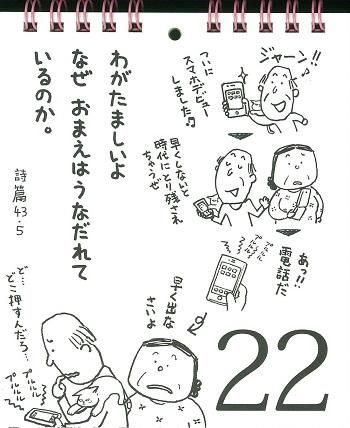 わがたましいよ
なぜ おまえはうなだれて
いるのか。
詩篇43・5
ジャーン!!
ついに
スマホデビュー
しました♫
早くしないと
時代にとり残され
ちゃうぜ
あっ!!
電話だ
プルルル
プルルル
プルルル
早く出な
さいよ
ど…
どこ押すんだろ…
プルルル
プルルル
22